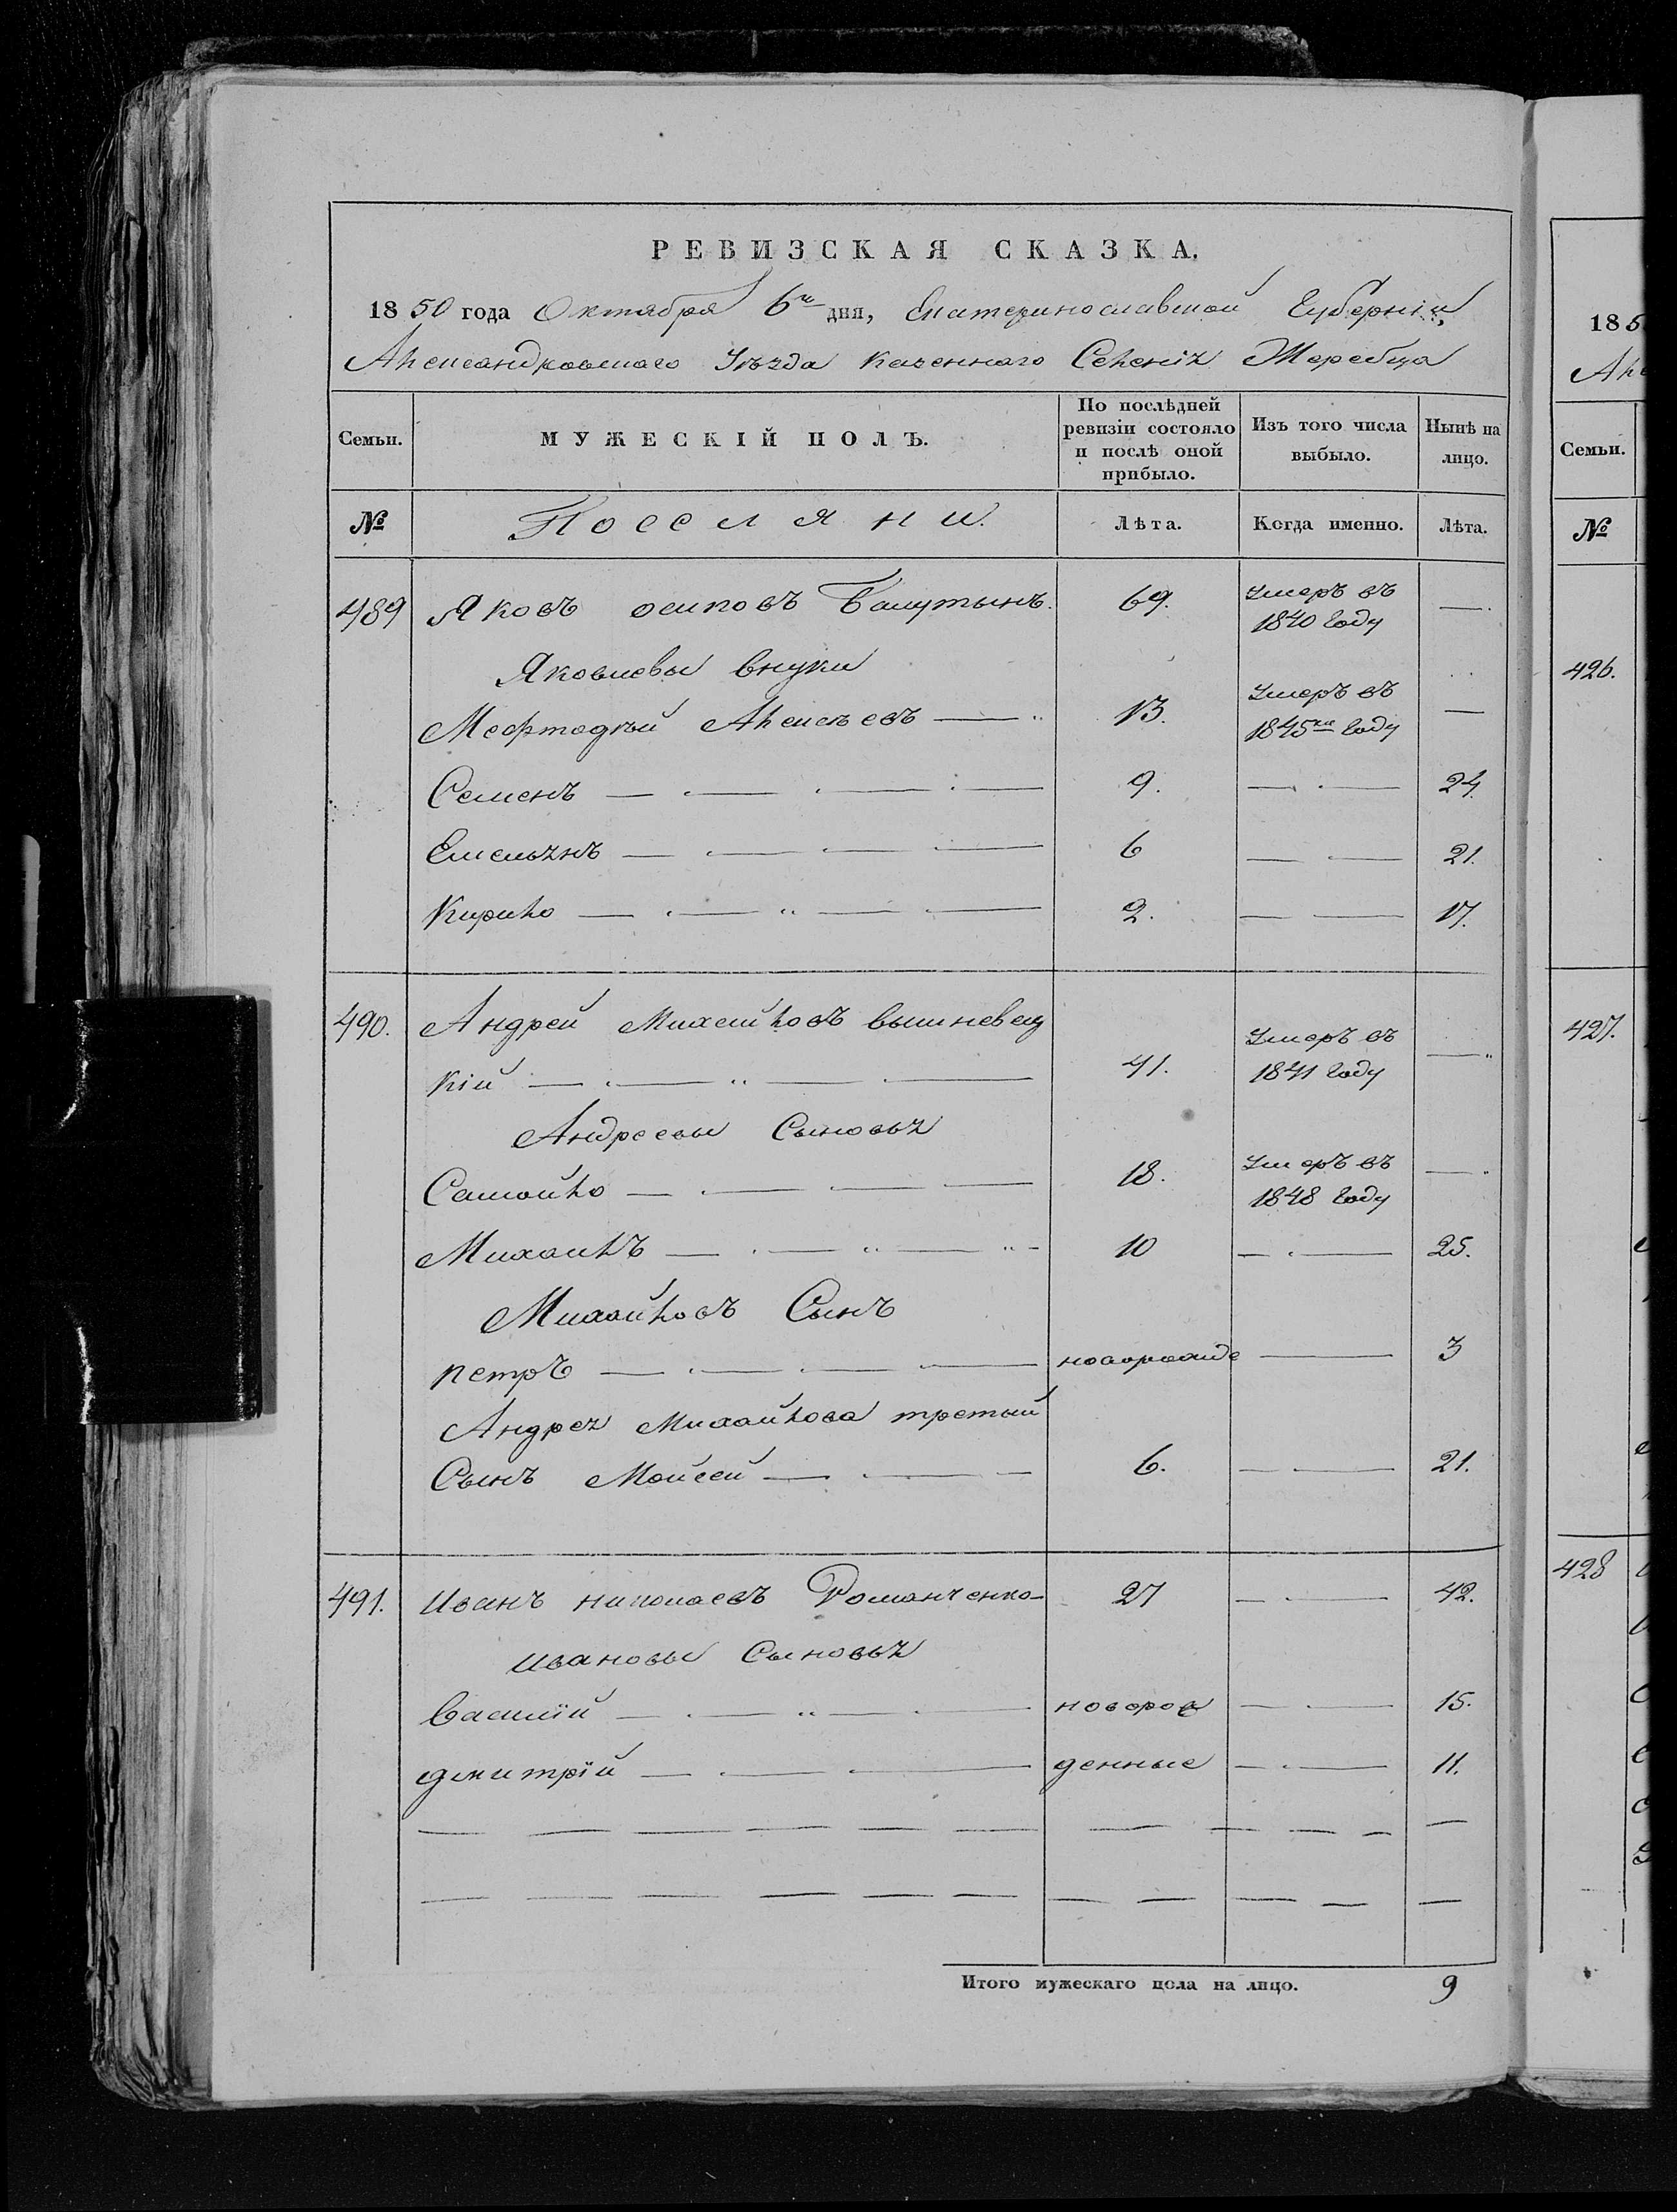 РЕВИЗСКАЯ СКАЗКА.
1850 года Октября 6го дня, Екатеринославской Губерніи,
Александровскаго Уѣзда Казеннаго Селенія Жеребца
Семьи. МУЖЕСКІЙ ПОЛЪ. По послѣдней ревизіи состояло и послѣ оной прибыло. Изъ того числа выбыло. Нынѣ на лицо.
№ Поселяни. Лѣта. Когда именно. Лѣта.
489 Яковъ осиповъ 69. Умеръ въ 1840 году —
Яковлевы внуки
Мефтодѣй Алексѣевъ — 13. Умеръ въ 1845м году —
Семенъ — 9. — 24
Емельянъ — 6 — 21.
Кирило — 2. — 17.
490. Андрей Михайловъ вышневец
кій — 41. Умеръ въ 1841 году —
Андреевы Сыновья
Самойло — 18. Умеръ въ 1848 году —
Михаилъ — 10 — 25.
Михайловъ Сынъ
петръ — новорожде — 3
Андрея Михайлова третый
Сынъ Мойсей — 6. — 21.
491. Иванъ николаевъ Романченко 27 — 42.
ивановы Сыновья
Василій — новорож — 15.
дмитрій — денные — 11.
Итого мужескаго пола на лицо. 9
185
Але
Семьи.
№
426.
427.
428